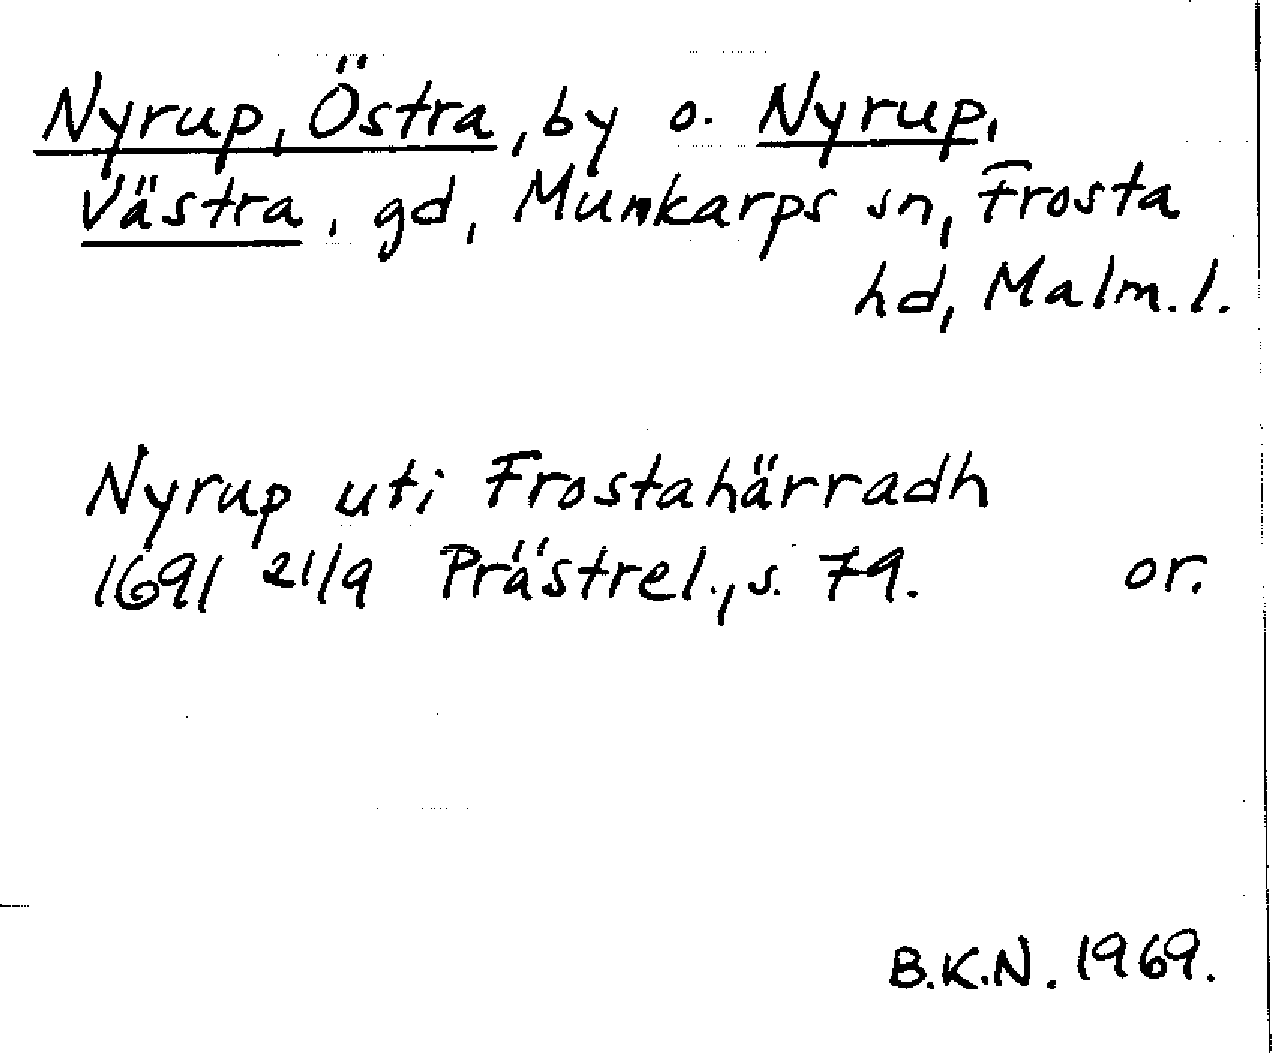 Nyrup, Östra, by o. Nyrup,
Västra, gd, Munkarps sn, Frosta
hd, Malm. l.
Nyrup uti Frostahärradh
1691 21/9 Prästrel., s. 79. or.
B.K.N. 1969.